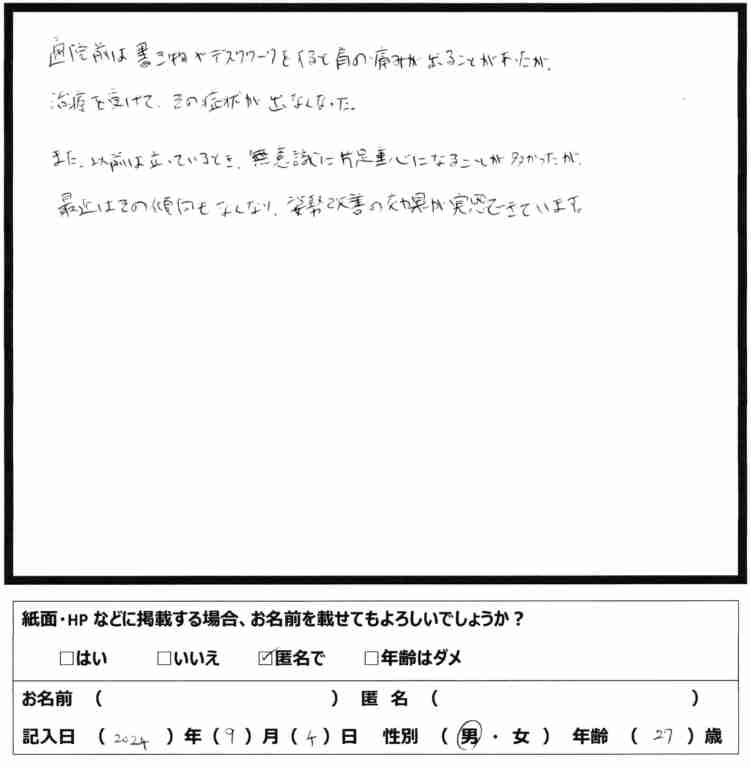 通院前は書き物やデスクワークをすると肩の痛みが出ることがあったが、
治療を受けて、その症状が出なくなった。
また、以前は立っているとき、無意識に片足重心になることが多かったが、
最近はその傾向もなくなり、姿勢改善の効果が実感できています。
紙面・HPなどに掲載する場合、お名前を載せてもよろしいでしょうか？
□はい □いいえ ☑匿名で □年齢はダメ
お名前 （ ） 匿 名 （ ）
記入日 （ 2024 ）年（ 9 ）月（ 4 ）日 性別 （ 男 ・ 女 ） 年齢 （ 27 ）歳